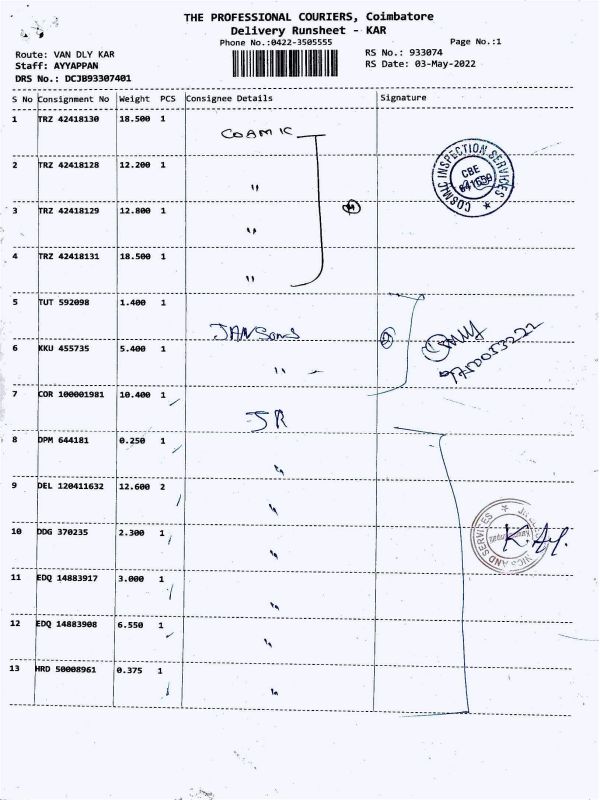 THE PROFESSIONAL COURIERS, Coimbatore
Delivery Runsheet - KAR
Phone No.:0422-3505555
Page No.:1
Route: VAN DLY KAR
Staff: AYYAPPAN
DRS No.: DCJB93307401
RS No.: 933074
RS Date: 03-May-2022
S No Consignment No Weight PCS Consignee Details Signature
1 TRZ 42418130 18.500 1 COAMIC
COSMIC INSPECTION SERVICES
CBE
641659
2 TRZ 42418128 12.200 1 "
3 TRZ 42418129 12.800 1 "
4 TRZ 42418131 18.500 1 "
5 TUT 592098 1.400 1 JANSons
6 KKU 455735 5.400 1 "
7 COR 100001981 10.400 1 JR
8 DPM 644181 0.250 1 "
9 DEL 120411632 12.600 2 "
10 DDG 370235 2.300 1 "
NICS AND SERVICES
11 EDQ 14883917 3.000 1 "
12 EDQ 14883908 6.550 1 "
13 HRD 50008961 0.375 1 "